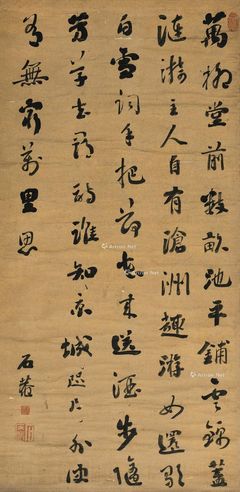 萬柳堂前數畝池平鋪雲錦蓋
漣漪主人自有滄洲趣游女還歌
白雪詞手把荷花來送酒步隨
芳草去尋詩誰知京城咫尺外便
有無窮萬里思
石菴
Artron.Net